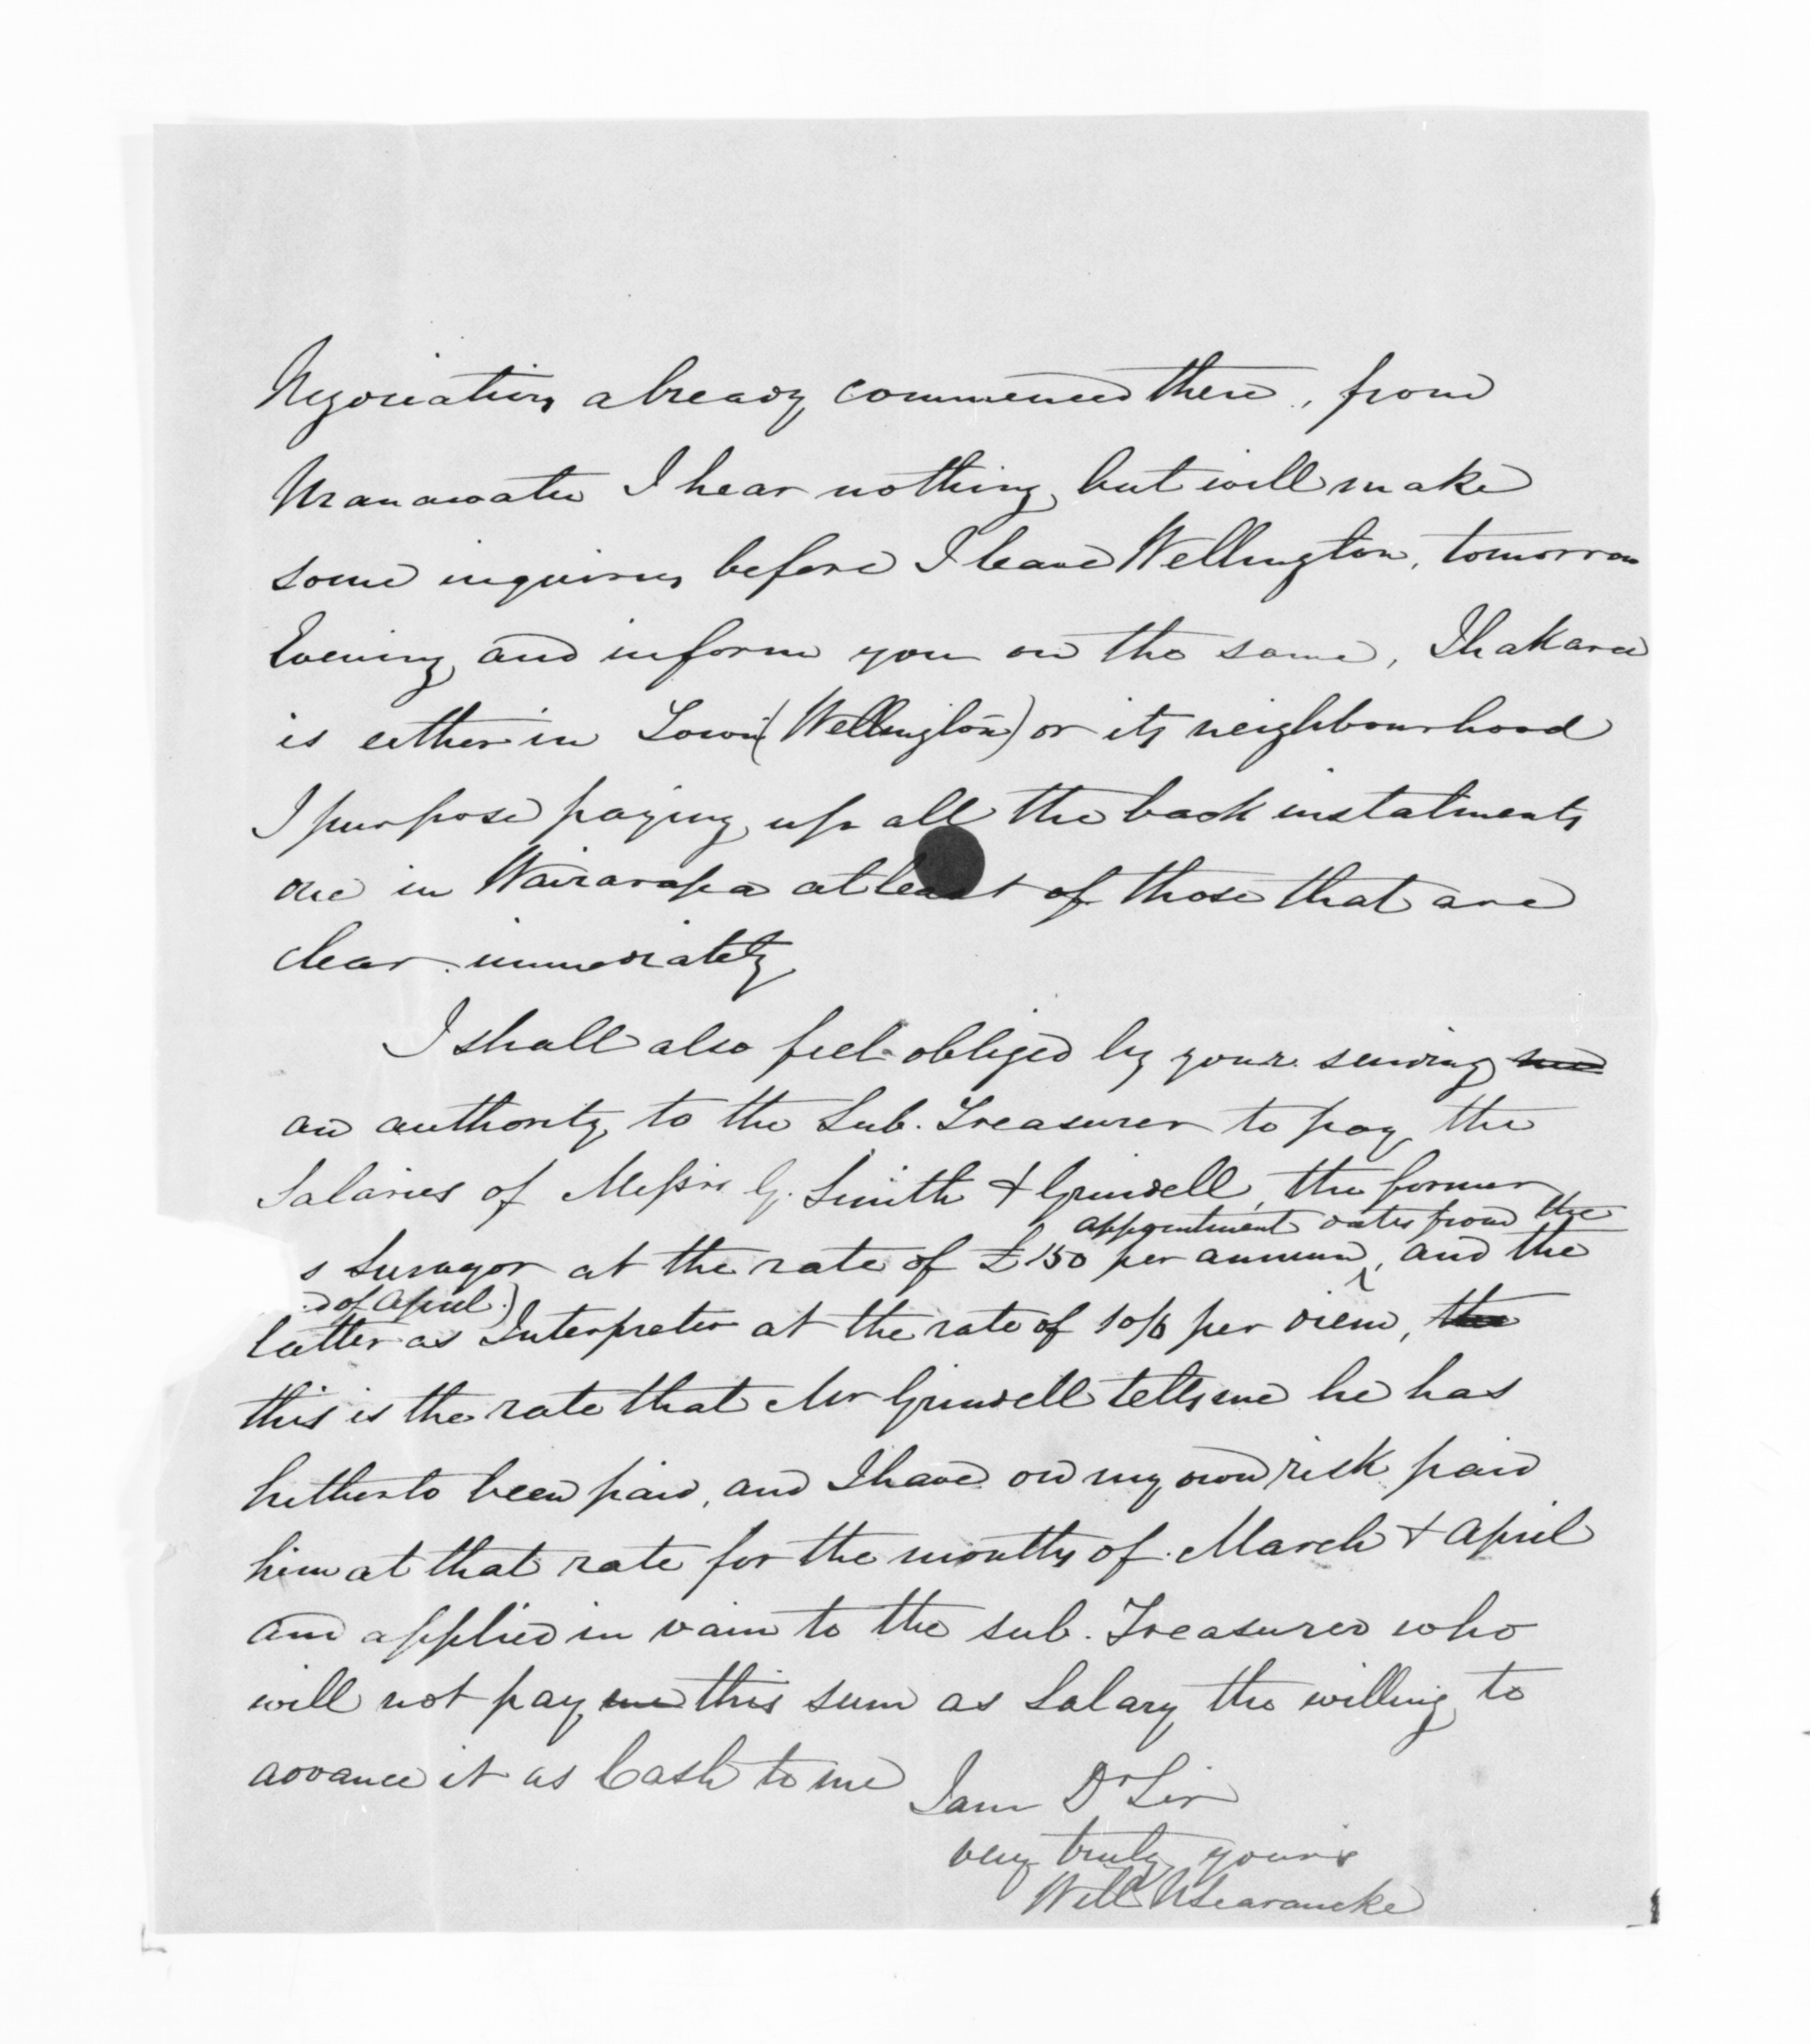 Negociations already commenced there, from
Manawatu I hear nothing, but will make
some inquiries before I leave Wellington, tomorrow
Evening and inform you on the same, Ihakara
is either in Town (Wellington) or its neighbourhood
I purpose paying up all the back instalments
due in Wairarapa at least of those that are
clear immediately
I shall also feel obliged by your sending me
an authority to the Sub. Treasurer to pay the
Salaries of Messrs G. Smith & Grindell, the former
appointment dates from the
s Surveyor at the rate of £150 per annum, and the
d of April)
latter as Interpreter at the rate of 10/6 per diem, the
this is the rate that Mr Grindell tells me he has
hitherto been paid, and I have on my own risk paid
him at that rate for the months of March & April
and applied in vain to the sub. Treasurer who
will not pay me this sum as Salary tho willing to
advance it as Cash to me
I am Dr Sir
very truly yours
Willm N Searancke